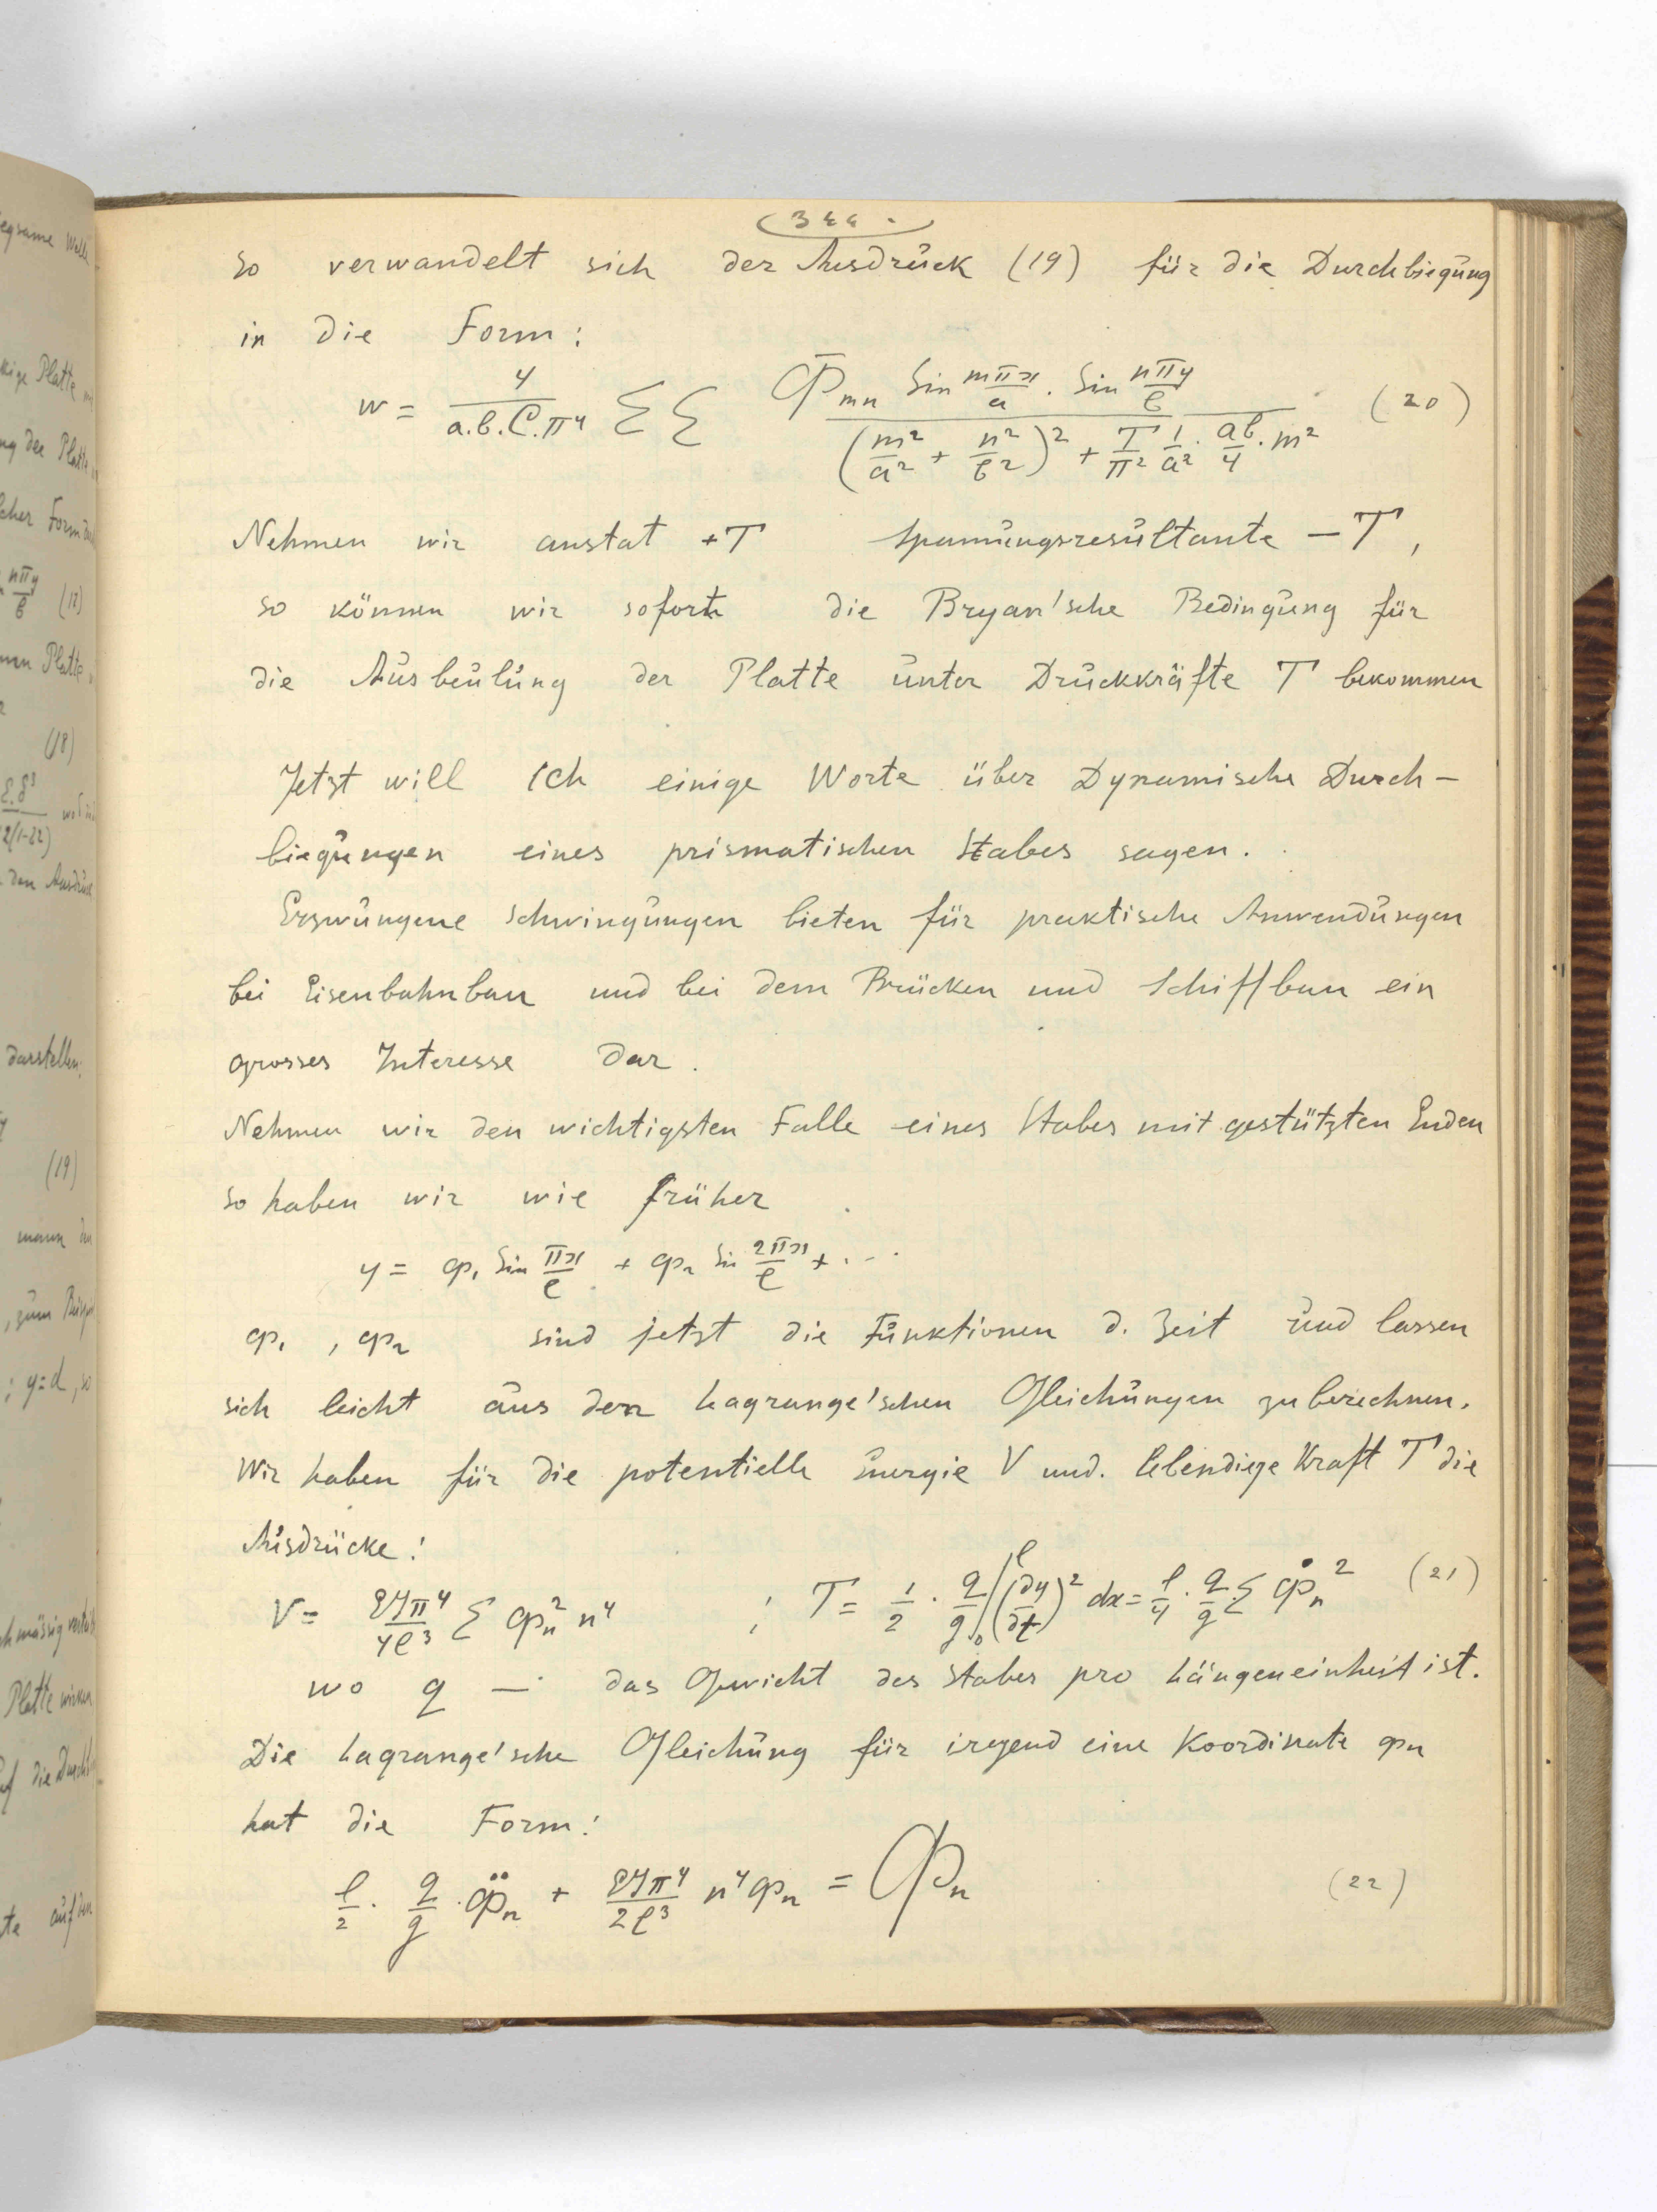 344.
so verwandelt sich der Ausdruck (19) für die Durchbiegung
in die Form:
w = 4/(a.b.C.π⁴) ΣΣ Φmn Sin mπx/a . Sin nπy/b / ((m²/a² + n²/b²)² + T/π² 1/a² . ab/4 . m²) (20)
Nehmen wir anstat +T Spannungsresultante − T,
so können wir sofort die Bryan'sche Bedingung für
die Ausbeulung der Platte unter Druckkräfte T bekommen
Jetzt will Ich einige Worte über Dynamische Durch-
biegungen eines prismatischen Stabes sagen.
Erzwungene Schwingungen bieten für praktische Anwendungen
bei Eisenbahnbau und bei dem Brücken und Schiffbau ein
grosses Interesse dar.
Nehmen wir den wichtigsten Falle eines Stabes mit gestützten Enden
so haben wir wie früher
y = φ₁ Sin πx/l + φ₂ Sin 2πx/l + ...
φ₁ , φ₂ sind jetzt die Funktionen d. Zeit und lassen
sich leicht aus den Lagrange'schen Gleichungen zu berechnen.
Wir haben für die potentielle Energie V und. lebendige Kraft T die
Ausdrücke:
V = EJπ⁴/4l³ Σ φn² n⁴ ; T = 1/2 . q/g ∫₀ˡ (∂y/∂t)² dx = l/4 . q/g Σ φ̇n² (21)
wo q — das Gewicht des Stabes pro Längeneinheit ist.
Die Lagrange'sche Gleichung für irgend eine Koordinate φn
hat die Form:
l/2 . q/g . φ̈n + EJπ⁴/2l³ n⁴φn = Φn (22)